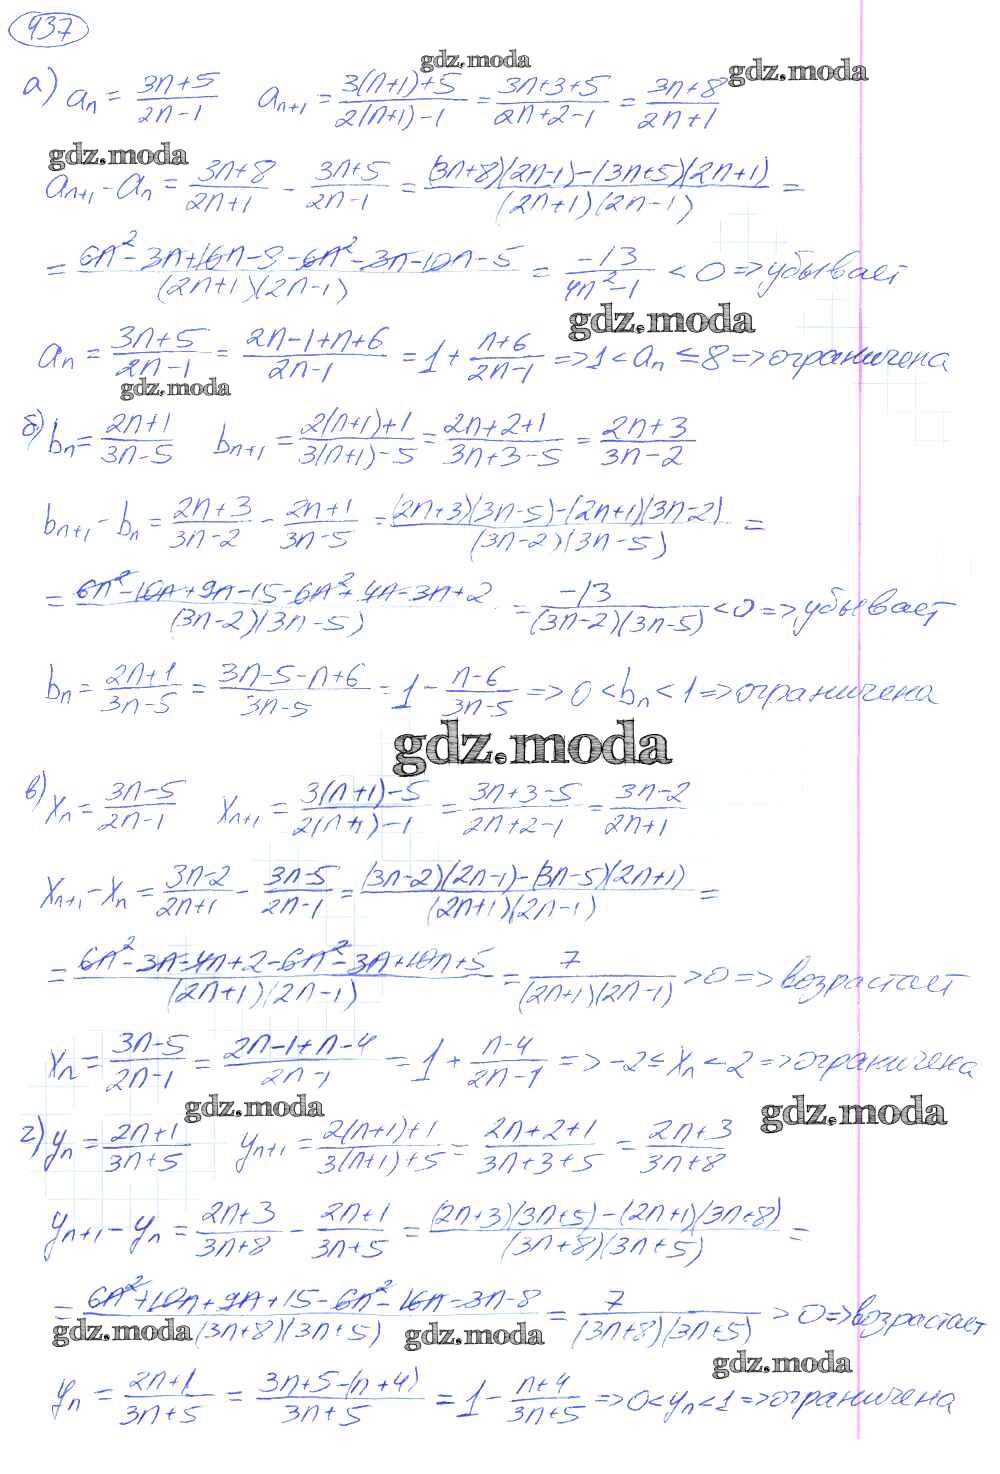 437
gdz.moda
а) aₙ = (3n+5)/(2n-1)   aₙ₊₁ = (3(n+1)+5)/(2(n+1)-1) = (3n+3+5)/(2n+2-1) = (3n+8)/(2n+1) gdz.moda
gdz.moda
aₙ₊₁ - aₙ = (3n+8)/(2n+1) - (3n+5)/(2n-1) = ((3n+8)(2n-1)-(3n+5)(2n+1))/((2n+1)(2n-1)) =
= (6n²-3n+16n-8-6n²-3n-10n-5)/((2n+1)(2n-1)) = -13/(4n²-1) < 0 => убывает
gdz.moda
aₙ = (3n+5)/(2n-1) = (2n-1+n+6)/(2n-1) = 1 + (n+6)/(2n-1) => 1 < aₙ ≤ 8 => ограничена
gdz.moda
б) bₙ = (2n+1)/(3n-5)   bₙ₊₁ = (2(n+1)+1)/(3(n+1)-5) = (2n+2+1)/(3n+3-5) = (2n+3)/(3n-2)
bₙ₊₁ - bₙ = (2n+3)/(3n-2) - (2n+1)/(3n-5) = ((2n+3)(3n-5)-(2n+1)(3n-2))/((3n-2)(3n-5)) =
= (6n²-10n+9n-15-6n²+4n-3n+2)/((3n-2)(3n-5)) = -13/((3n-2)(3n-5)) < 0 => убывает
bₙ = (2n+1)/(3n-5) = (3n-5-n+6)/(3n-5) = 1 - (n-6)/(3n-5) => 0 < bₙ < 1 => ограничена
gdz.moda
в) xₙ = (3n-5)/(2n-1)   xₙ₊₁ = (3(n+1)-5)/(2(n+1)-1) = (3n+3-5)/(2n+2-1) = (3n-2)/(2n+1)
xₙ₊₁ - xₙ = (3n-2)/(2n+1) - (3n-5)/(2n-1) = ((3n-2)(2n-1)-(3n-5)(2n+1))/((2n+1)(2n-1)) =
= (6n²-3n-4n+2-6n²-3n+10n+5)/((2n+1)(2n-1)) = 7/((2n+1)(2n-1)) > 0 => возрастает
xₙ = (3n-5)/(2n-1) = (2n-1+n-4)/(2n-1) = 1 + (n-4)/(2n-1) => -2 ≤ xₙ < 2 => ограничена
gdz.moda gdz.moda
г) yₙ = (2n+1)/(3n+5)   yₙ₊₁ = (2(n+1)+1)/(3(n+1)+5) = (2n+2+1)/(3n+3+5) = (2n+3)/(3n+8)
yₙ₊₁ - yₙ = (2n+3)/(3n+8) - (2n+1)/(3n+5) = ((2n+3)(3n+5)-(2n+1)(3n+8))/((3n+8)(3n+5)) =
= (6n²+10n+9n+15-6n²-16n-3n-8)/((3n+8)(3n+5)) = 7/((3n+8)(3n+5)) > 0 => возрастает
gdz.moda gdz.moda
gdz.moda
yₙ = (2n+1)/(3n+5) = (3n+5-(n+4))/(3n+5) = 1 - (n+4)/(3n+5) => 0 < yₙ < 1 => ограничена